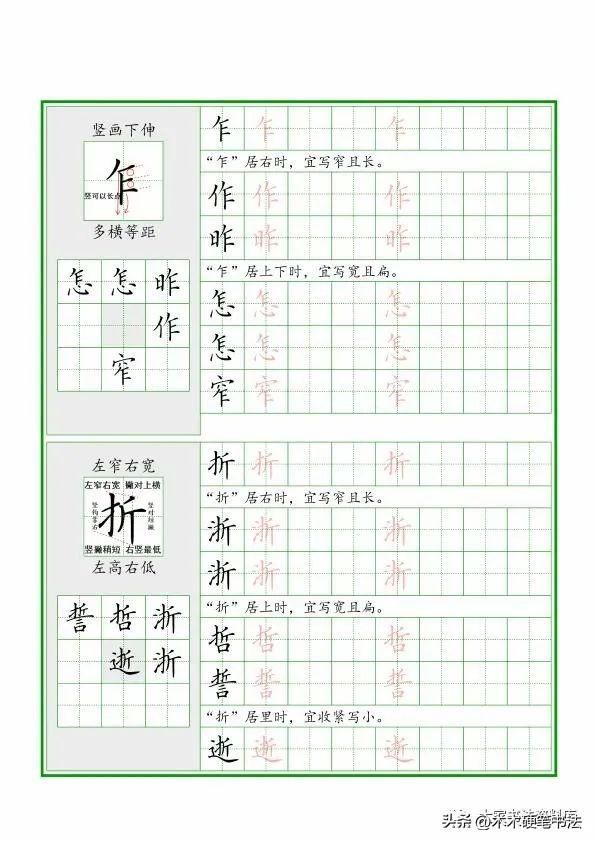 竖画下伸
乍
竖可以长点
多横等距
怎 怎 昨
作
窄
乍 乍 乍
“乍”居右时，宜写窄且长。
作 作 作
昨 昨 昨
“乍”居上下时，宜写宽且扁。
怎 怎 怎
怎 怎 怎
窄 窄 窄
左窄右宽
左窄右宽 撇对上横
竖钩靠右
折
竖对短撇
竖撇稍短 右竖最低
左高右低
誓 哲 浙
逝 浙
折 折 折
“折”居右时，宜写窄且长。
浙 浙 浙
浙 浙 浙
“折”居上时，宜写宽且扁。
哲 哲 哲
誓 誓 誓
“折”居里时，宜收紧写小。
逝 逝 逝
头条 @木木硬笔书法